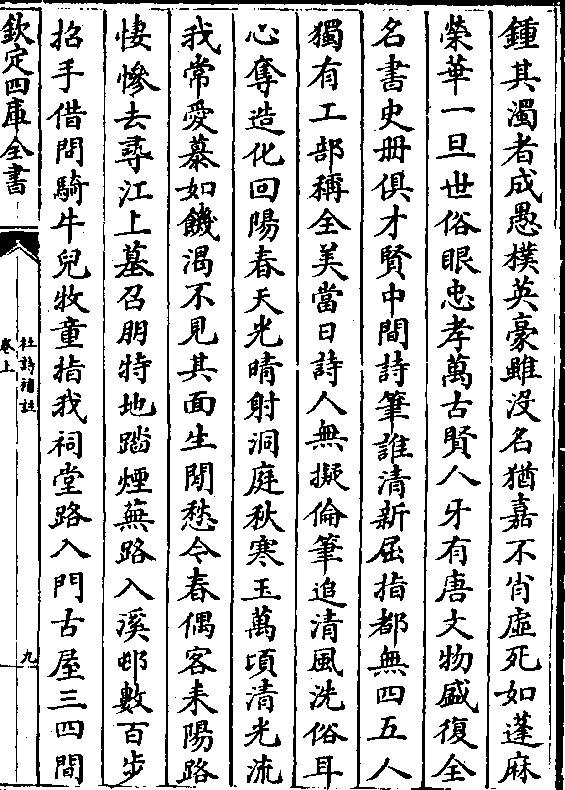 鍾其濁者成愚樸英豪雖沒名猶嘉不肖虛死如蓬麻
榮華一旦世俗眼忠孝萬古賢人牙有唐文物盛復全
名書史冊俱才賢中間詩筆誰清新屈指都無四五人
獨有工部稱全美當日詩人無擬倫筆追清風洗俗耳
心奪造化回陽春天光晴射洞庭秋寒玉萬頃清光流
我常愛慕如饑渴不見其面生閒愁今春偶客耒陽路
悽慘去尋江上墓召朋特地踏煙蕪路入溪邨數百步
招手借問騎牛兒牧童指我祠堂路入門古屋三四間
欽定四庫全書
杜詩補註
卷上
九